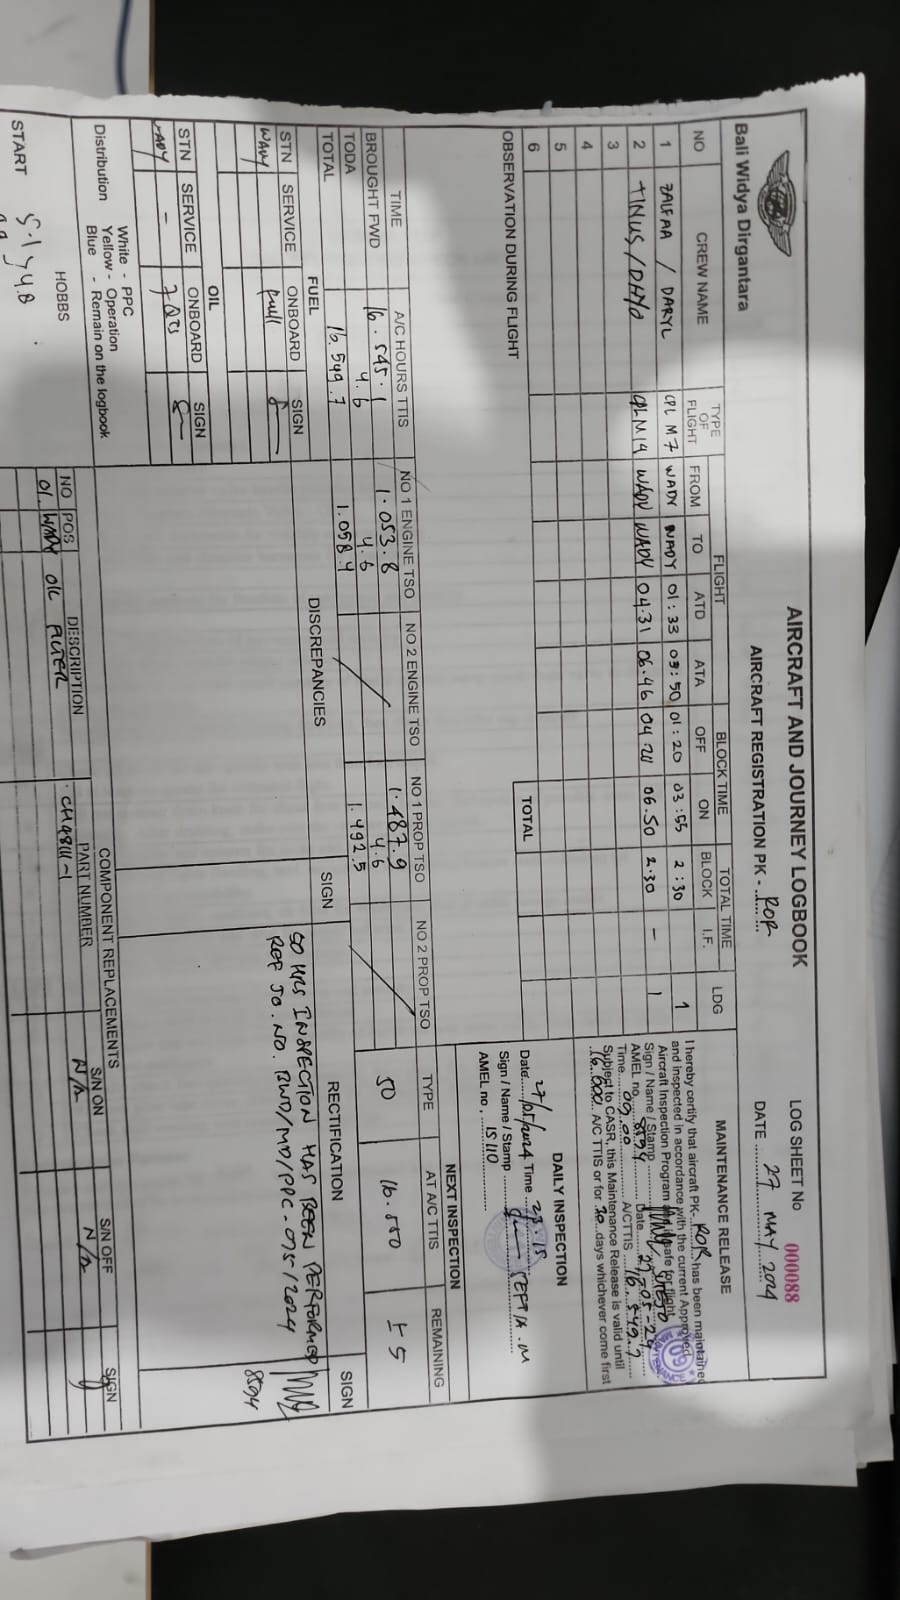 Bali Widya Dirgantara
AIRCRAFT AND JOURNEY LOGBOOK
AIRCRAFT REGISTRATION PK - ROR
LOG SHEET No 000088
DATE 27 MAY 2024
NO CREW NAME TYPE OF FLIGHT FLIGHT BLOCK TIME TOTAL TIME LDG
FROM TO ATD ATA OFF ON BLOCK I.F.
1 ZALFAA / DARYL CPL M7 WADY WADY 01:33 03:50 01:20 03:55 2:30 1
2 TINUS / DHYO CPL M14 WADY WADY 04.31 06.46 04 06.50 2.30 - 1
3
4
5
6
TOTAL
OBSERVATION DURING FLIGHT
MAINTENANCE RELEASE
I hereby certify that aircraft PK-ROR has been maintained
and inspected in accordance with the current Approved
Aircraft Inspection Program and is safe for flight
Sign / Name / Stamp
AMEL no. 8594 Date 27-05-24
Time 09.00 A/CTTIS 16.549.7
Subject to CASR, this Maintenance Release is valid until
16.600 A/C TTIS or for 30 days whichever come first
DAILY INSPECTION
Date 27/05/2024 Time 23.15
Sign / Name / Stamp SEPTIA .M
AMEL no. 15110
TIME A/C HOURS TTIS NO 1 ENGINE TSO NO 2 ENGINE TSO NO 1 PROP TSO NO 2 PROP TSO
BROUGHT FWD 16.545.1 1.053.8 1.487.9
TODA 4.6 4.6 4.6
TOTAL 16.549.7 1.058.4 1.492.5
NEXT INSPECTION
TYPE AT A/C TTIS REMAINING
50 16.550 ± 5
FUEL
STN SERVICE ONBOARD SIGN
WADY full
OIL
STN SERVICE ONBOARD SIGN
WADY - 7 QTS
DISCREPANCIES SIGN RECTIFICATION SIGN
50 HRS INSPECTION HAS BEEN PERFORMED
REF JO. NO. BWD/MD/PPC-075/2024
8594
Distribution White - PPC
Yellow - Operation
Blue - Remain on the logbook
COMPONENT REPLACEMENTS
NO POS DESCRIPTION PART NUMBER S/N ON S/N OFF SIGN
01. WADY OIL FILTER CH48111-1 N/A N/A
HOBBS
START